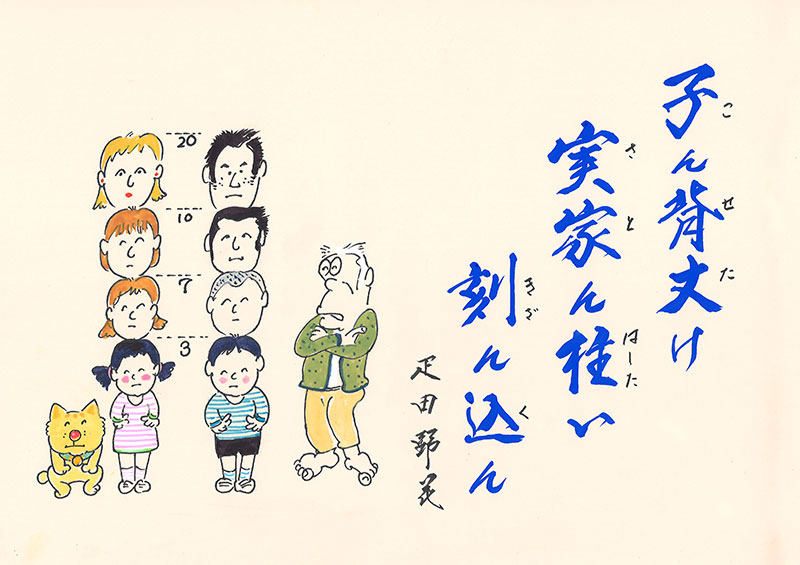 こ せ た
子ん背丈け
さ と はした
実家ん柱い
きざ く
刻ん込ん
疋田
20
10
7
3